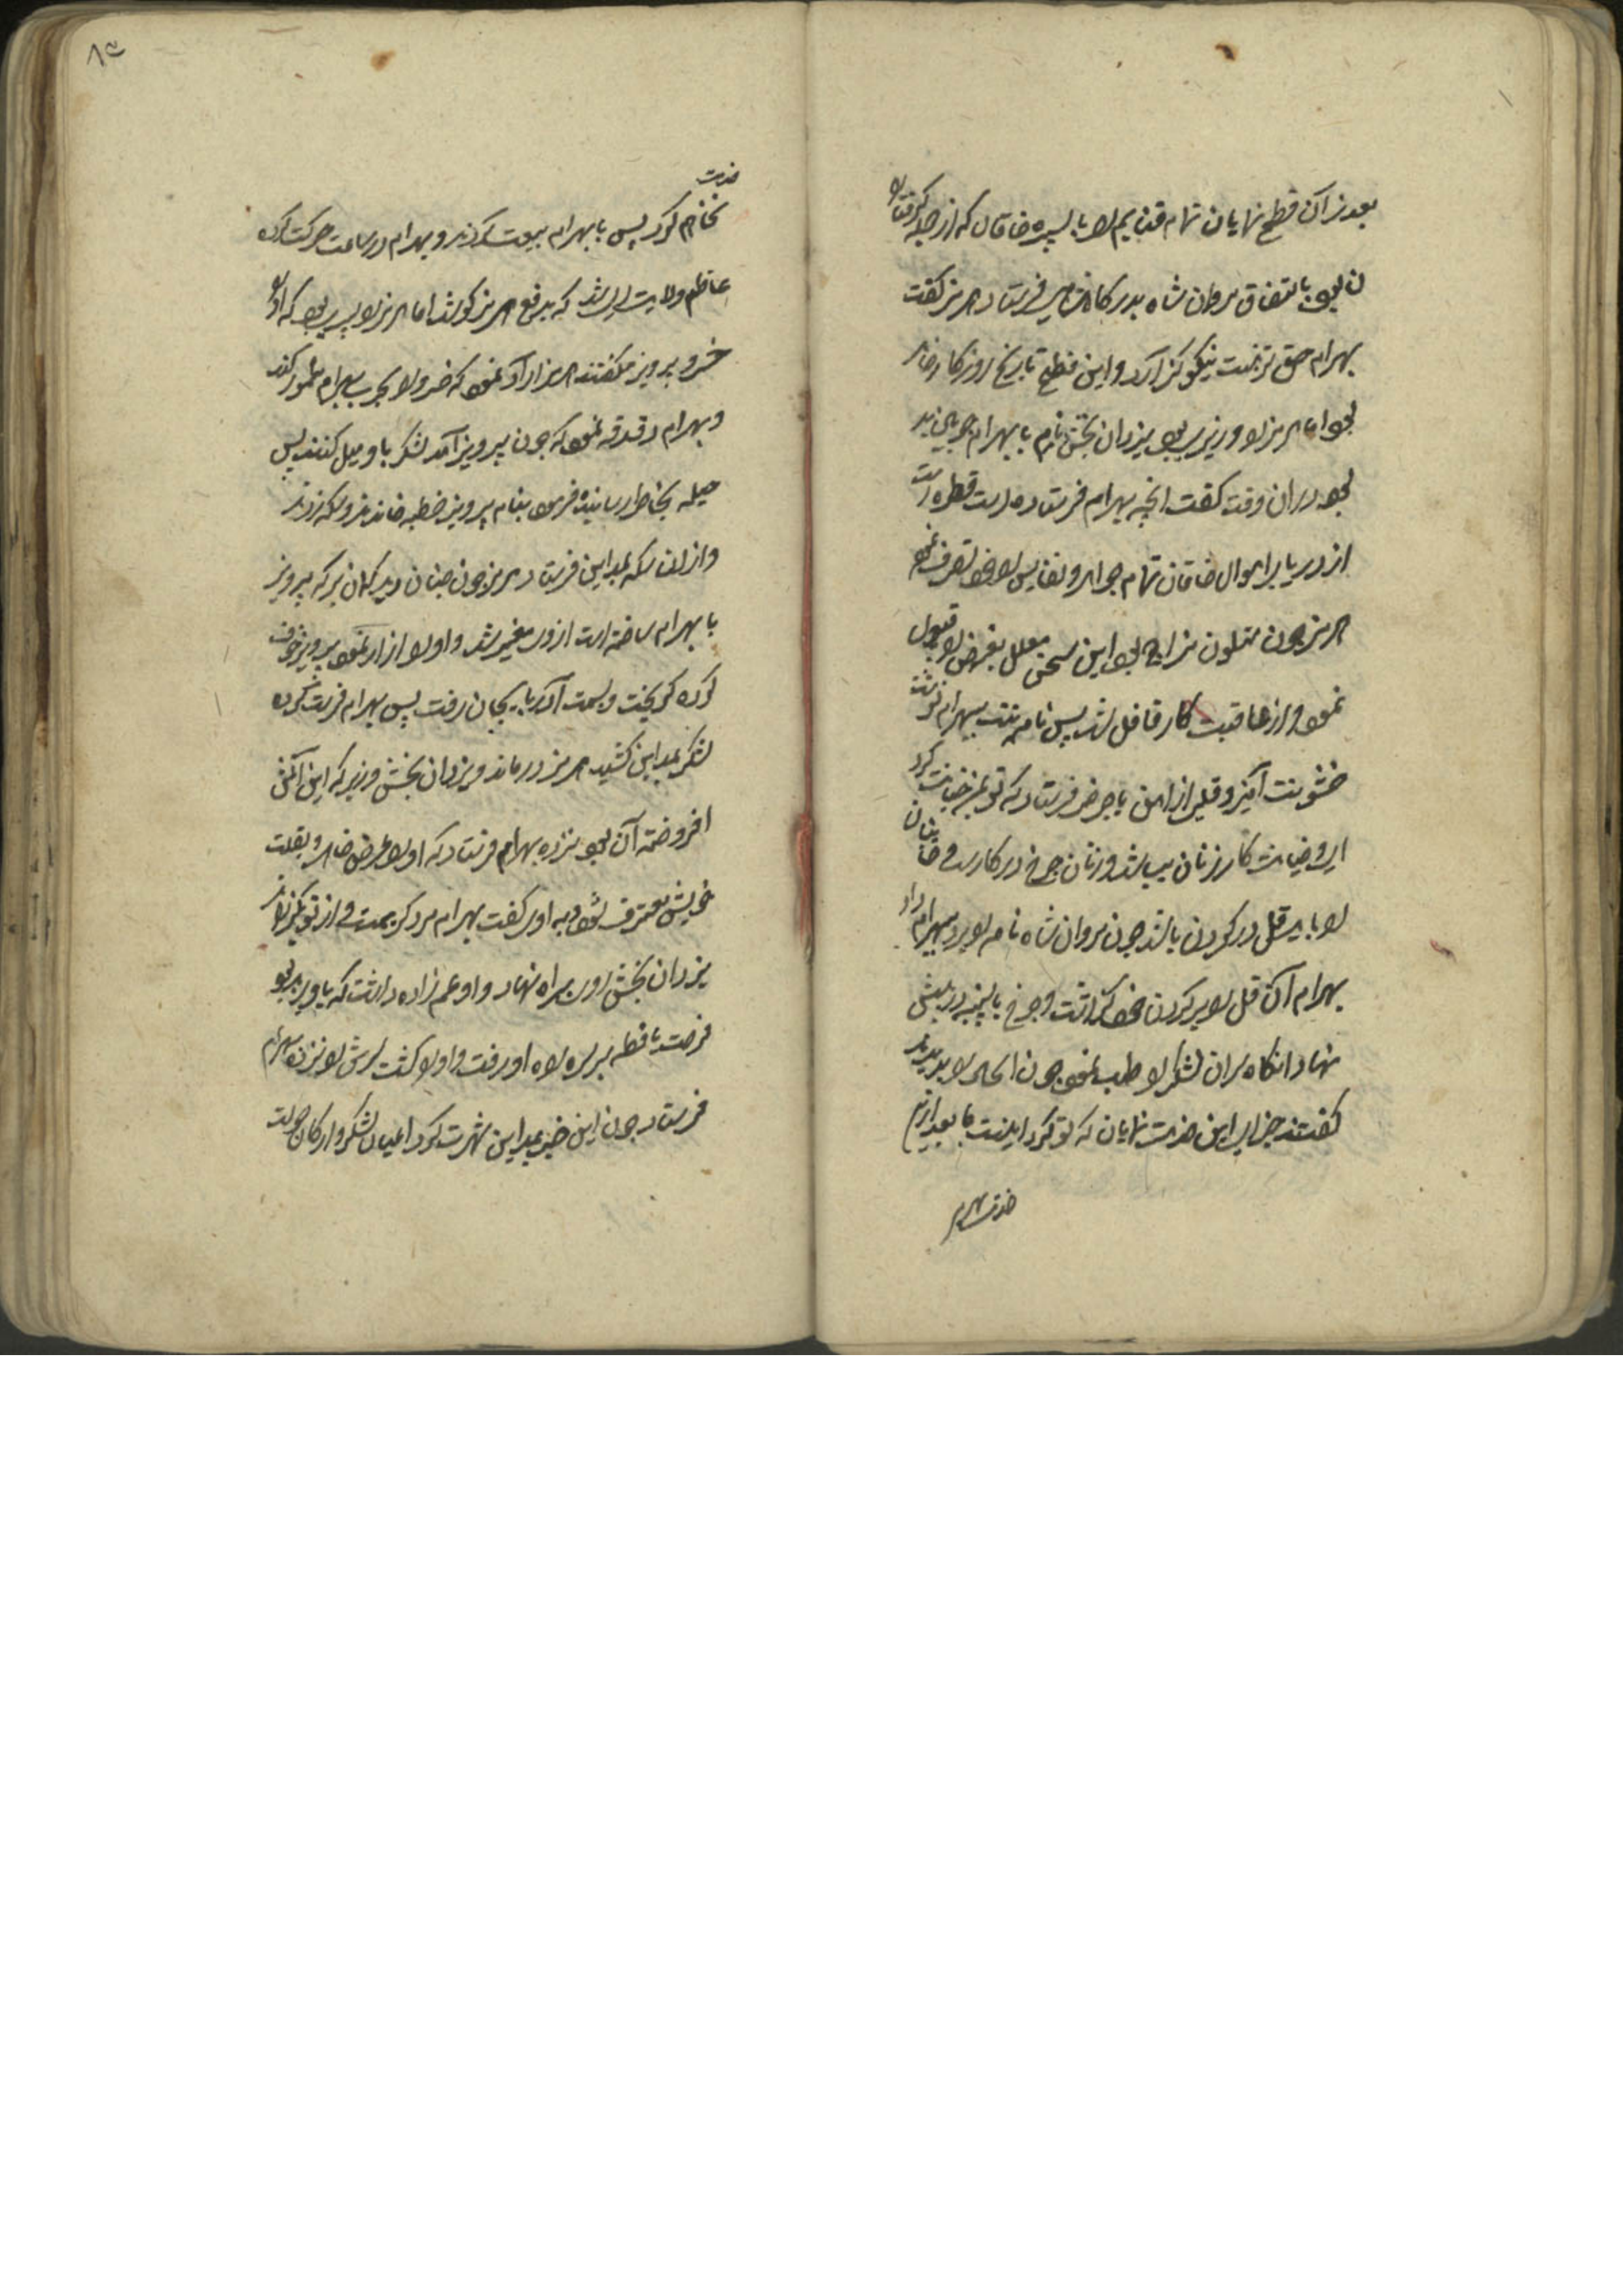 بعد از آن فتح نمایان تمام غنایم را با پسر خاقان که از جمله گرفتاران
بود باتفاق مروان شاه بدرگاه هرمز فرستاد هرمز گفت
بهرام حق تربیت نیکو گزارد و این فتح تاریخ روزگار خواهد
بود اما هرمز را وزیری بود یزدان بخش نام با بهرام
بود در آن وقت گفت آنچه بهرام فرستاده است قطره است
از دریا برا موال خاقان تمام جواهر و نفایس را خود تصرف نموده
هرمز چون متلون مزاج بود این سخن معلل بغرض را قبول
نمود و از عاقبت کار غافل شد پس نامه بهرام نوشت
خشونت آمیز و غلی از آهن با چرخ فرستاد که تو بمن خیانت کرد
و خیانت کار زنان باشد و زنان چرخ در کار است و خاینان
را باید غل در گردن باشد چون مروان شاه نامه را ببهرام داد
بهرام آن غل را بر گردن خود گذاشت و چرخ با پنبه در پیش
نهاد آنگاه سران لشکر را طلب نمود چون آنحال را بدیدند
گفتند جزای این خدمت نمایان که تو کرد اینست ما بعد ازین
خدمت هرمز
خدمت
نخواهیم کرد پس با بهرام بیعت کردند و بهرام در ساعت حرکت کرده
عازم ولایت ایران شد که بدفع هرمز کوشد اما هرمز را پسری بود که او را
خسرو پرویز میگفتند هرمز اراده نمود که خسرو را بحرب بهرام مامور کند
و بهرام دغدغه نمود که چون پرویز آمد لشکر باو میل کنند پس
حیله بخاطر رسانیده فرمود بنام پرویز خطبه خواندند و سکه زدند
و از آن سکه بمداین فرستاد هرمز چون چنان دید گمان برد که پرویز
با بهرام ساخته است از و متغیر شد و او را ازار نمود پرویز خوف
کرده گریخت و بسمت آذربایجان رفت پس بهرام فرصت کرده
لشکر بمداین کشید هرمز درماند و یزدان بخش وزیر که این آتش
افروخته آن بود نزد بهرام فرستاد که او را عرض خواهد و بغلت
خویش معترف شود به او گفت بهرام مرد کریمست و از تو بگذراند
یزدان بخش رو براه نهاد و او عم زاده داشت که با او بد بود
فرصت یافته بر سر راه او رفت و او را کشت سرش را نزد بهرام
فرستاد چون این خبر بمداین شهرت کرد اعیان لشکر و ارکان دولت